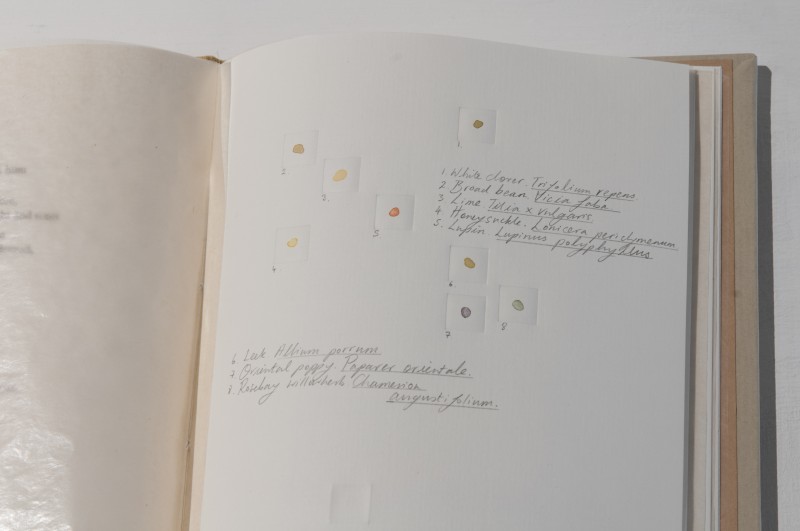 1
2
3.
5
4
1. White clover Trifolium repens.
2 Broad bean. Vicia faba
3 Lime Tilia x vulgaris
4. Honeysuckle. Lonicera periclymenum
5. Lupin Lupinus polyphyllus
6
7
8
6. Leek Allium porrum
7. Oriental poppy Papaver orientale.
8. Rosebay willowherb Chamerion
angustifolium.